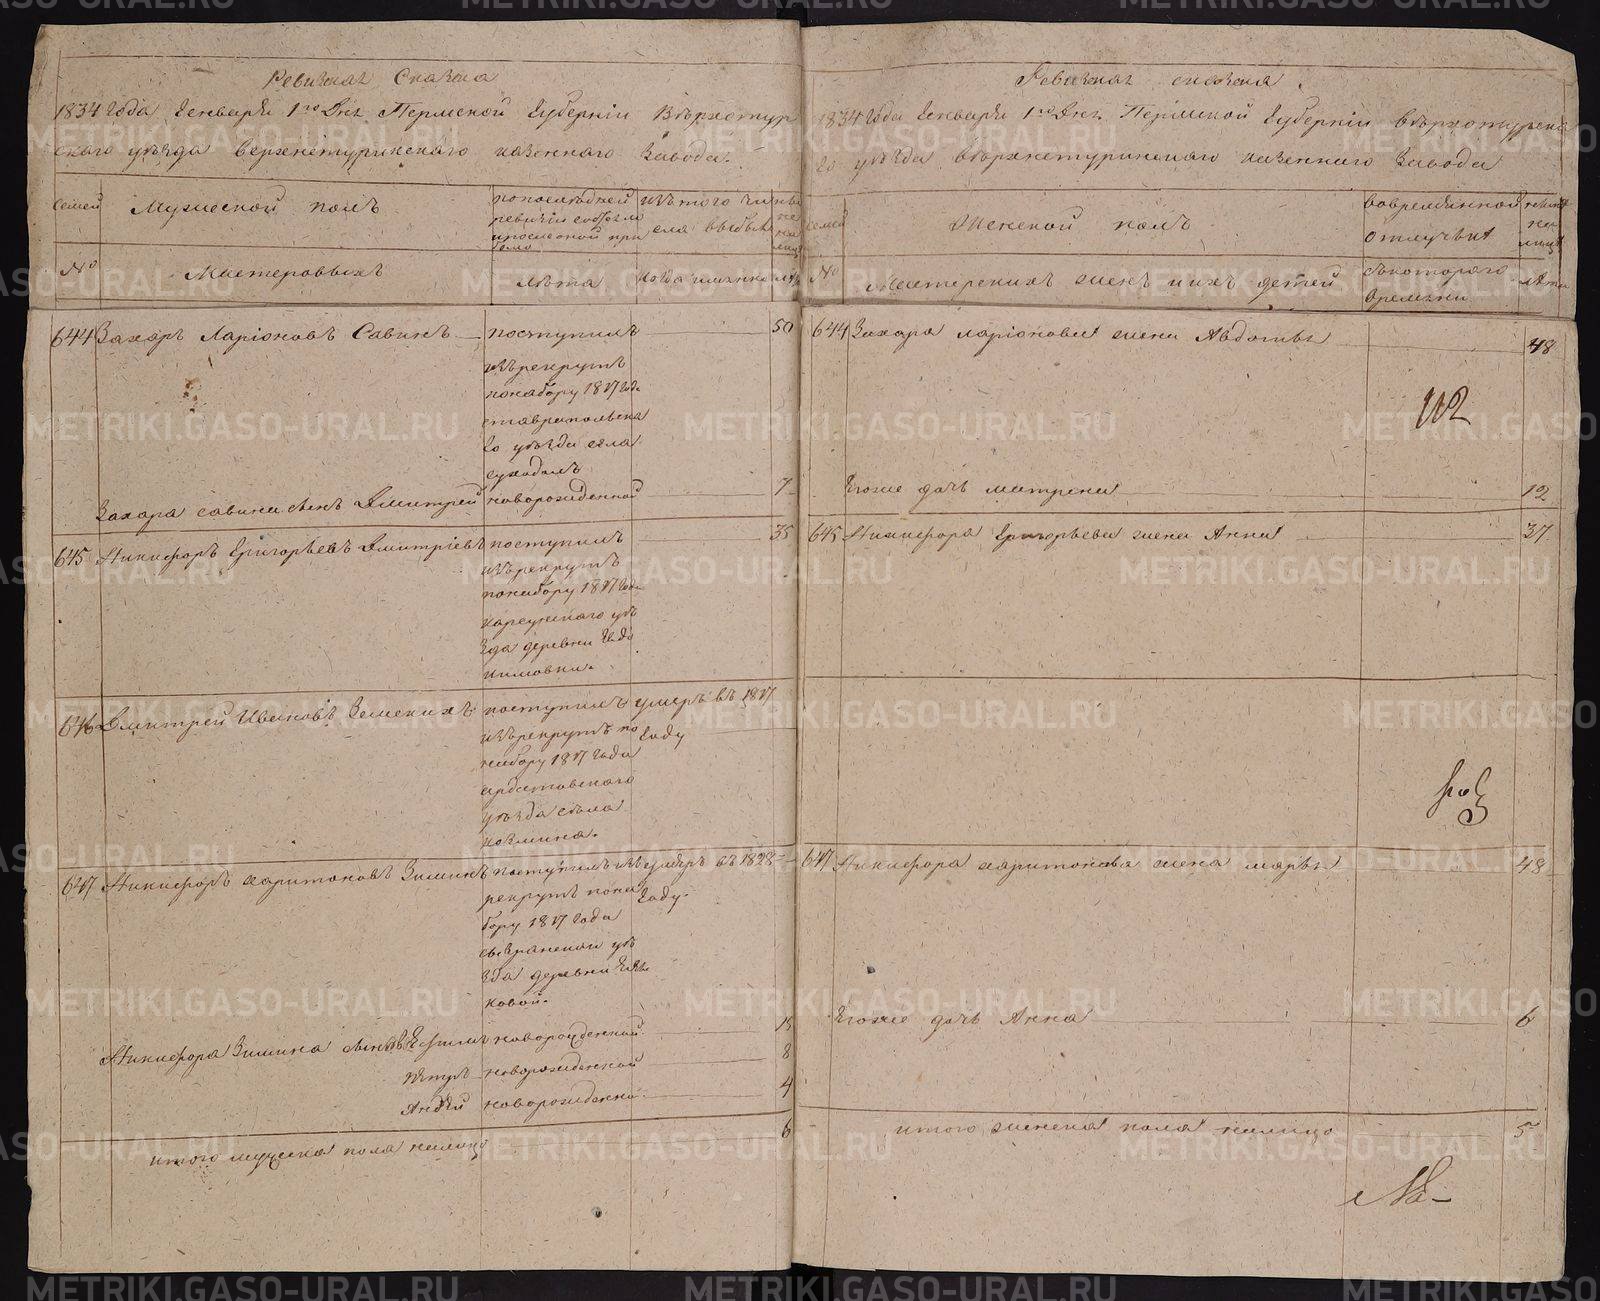 Ревизская Сказка
1834 года Генваря 1го дня Пермской Губернии Верхотур
скаго уезда верхнетуринского казенного Завода.
семей
Мужеской полъ
попоследней
ревизии состояло
и после оной при
было
изъ того чи
сла выбыло
ныне
на
лицо
№
Мастеровыхъ
лета
когда имянно
лета
644 Захаръ Ларионовъ Савинъ поступилъ 50
изърекрутъ
понабору 1817 года
ставропольска
го уезда села
суходолъ
Захара савина сынъ Дмитрей новорожденной 7
645 Никифоръ Григорьевъ Дмитриевъ поступилъ 35
изърекрутъ
понабору 1817 года
карсунского уе
зда деревни
кимовки.
646 Дмитрей Ивановъ Земскихъ поступилъ умеръ въ 1817
изърекрутъ по году
набору 1817 года
ардатовского
уезда села
козмина.
647 Никифоръ харитоновъ Зиминъ поступилъ изъ умеръ въ 1828
рекрутъ пона году.
бору 1817 года
сызранской уе
зда деревни
ковой.
Никифора Зимина сыновья Ефимъ новорожденной 15
Петръ новорожденной 8
Андрей новорожденной 4
итого мужеска пола налицо 6
Ревизская сказка.
1834 года Генваря 1го дня Пермской Губернии верхотурска
го уезда верхнетуринского казенного завода
семей
Женской полъ
вовременной
отлучке
ныне
на
лицо
№
Мастерскихъ женъ и ихъ детей
скотораго
времени
лета
644 Захара ларионова жена Авдотья 48
Егоже дочь матрена 12
645 Никифора Григорьева жена Анна 37
647 Никифора харитонова жена марья 48
Егоже дочь Анна 6
итого женска пола налицо 5
METRIKI.GASO-URAL.RU